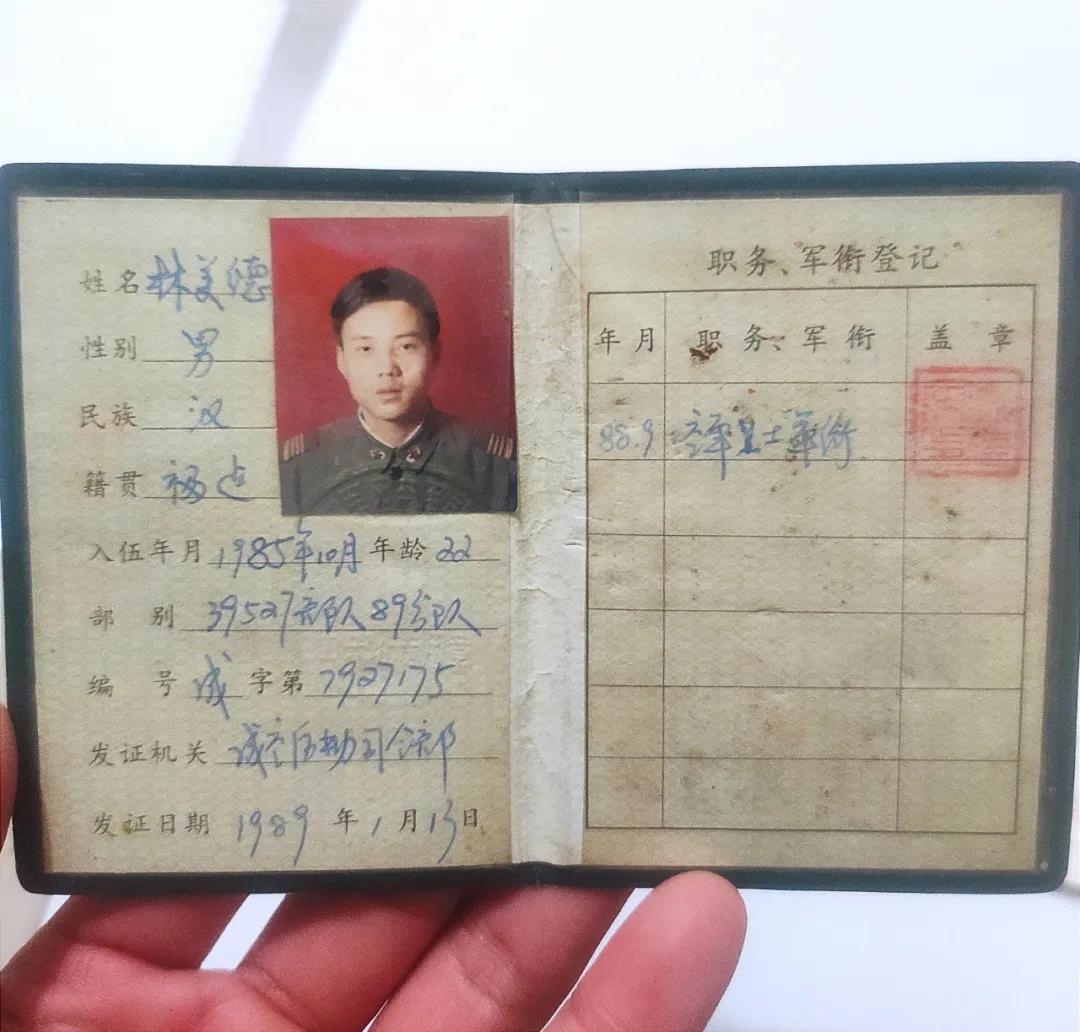 姓名 林美德
性别 男
民族 汉
籍贯 福建
入伍年月 1985年10月 年龄 22
部别 39527部队89分队
编号 成 字第 7927175
发证机关 司令部
发证日期 1989 年 1 月 13 日
职务、军衔登记
年月 职务、军衔 盖章
88.9 士军衔